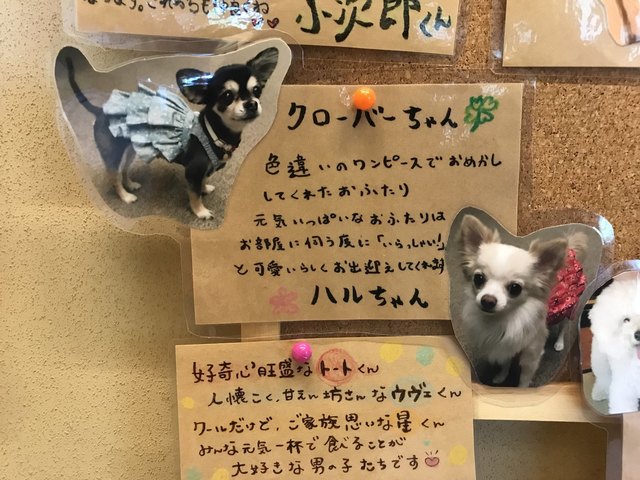 これからも
小次郎くん
クローバーちゃん
色違いのワンピースでおめかし
してくれたおふたり
元気いっぱいなおふたりは
お部屋に伺う度に「いらっしゃい!」
と可愛いらしくお出迎えしてくれます
ハルちゃん
好奇心旺盛なトートくん
人懐こく、甘えん坊さんなウヴェくん
クールだけど、ご家族思いな星くん
みんな元気一杯で食べることが
大好きな男の子たちです